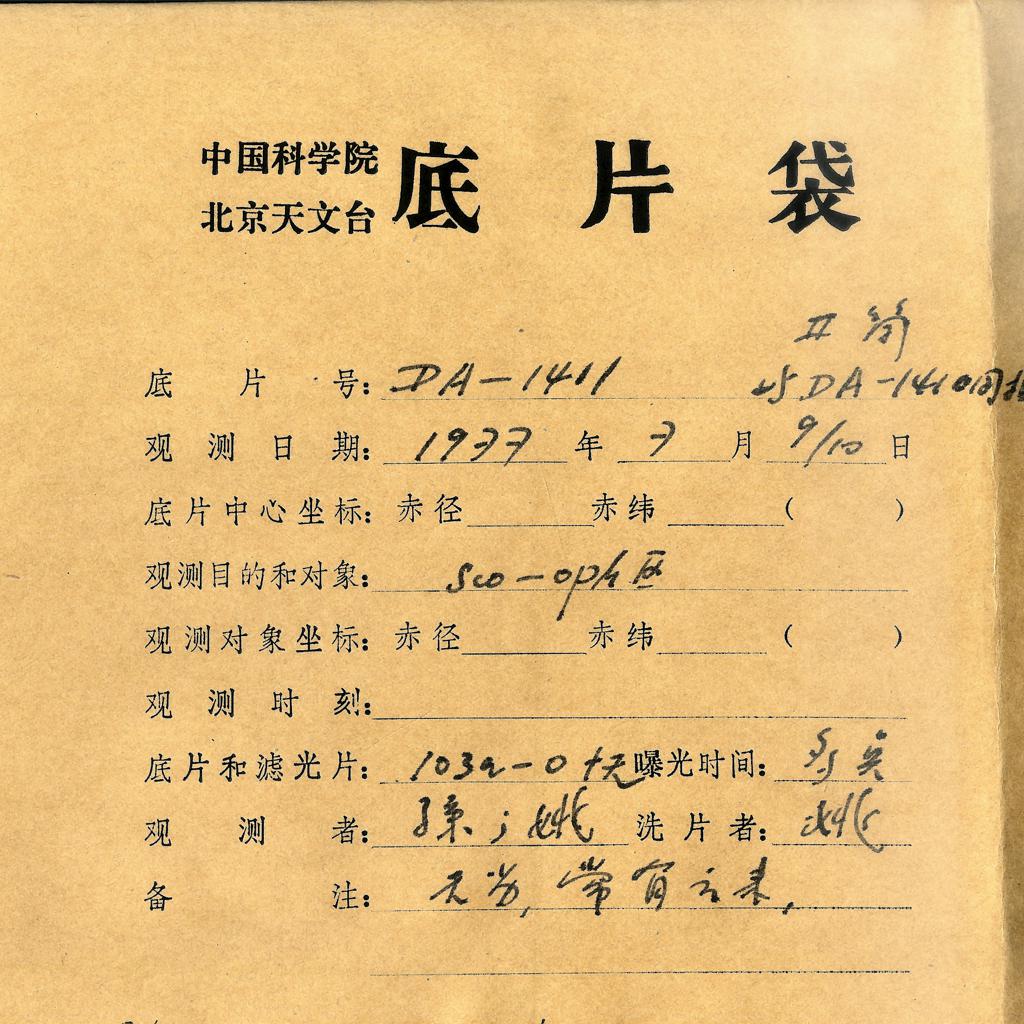 中国科学院
北京天文台
底片袋
II 筒
底片号：DA-1411 与DA-1410同
观测日期：1977年7月9/10日
底片中心坐标：赤径 赤纬 （ ）
观测目的和对象：Sco-oph 区
观测对象坐标：赤径 赤纬 （ ）
观测时刻：
底片和滤光片：103a-O+无 曝光时间：
观测者：孙；姚 洗片者：姚
备注：无月，常有云来，